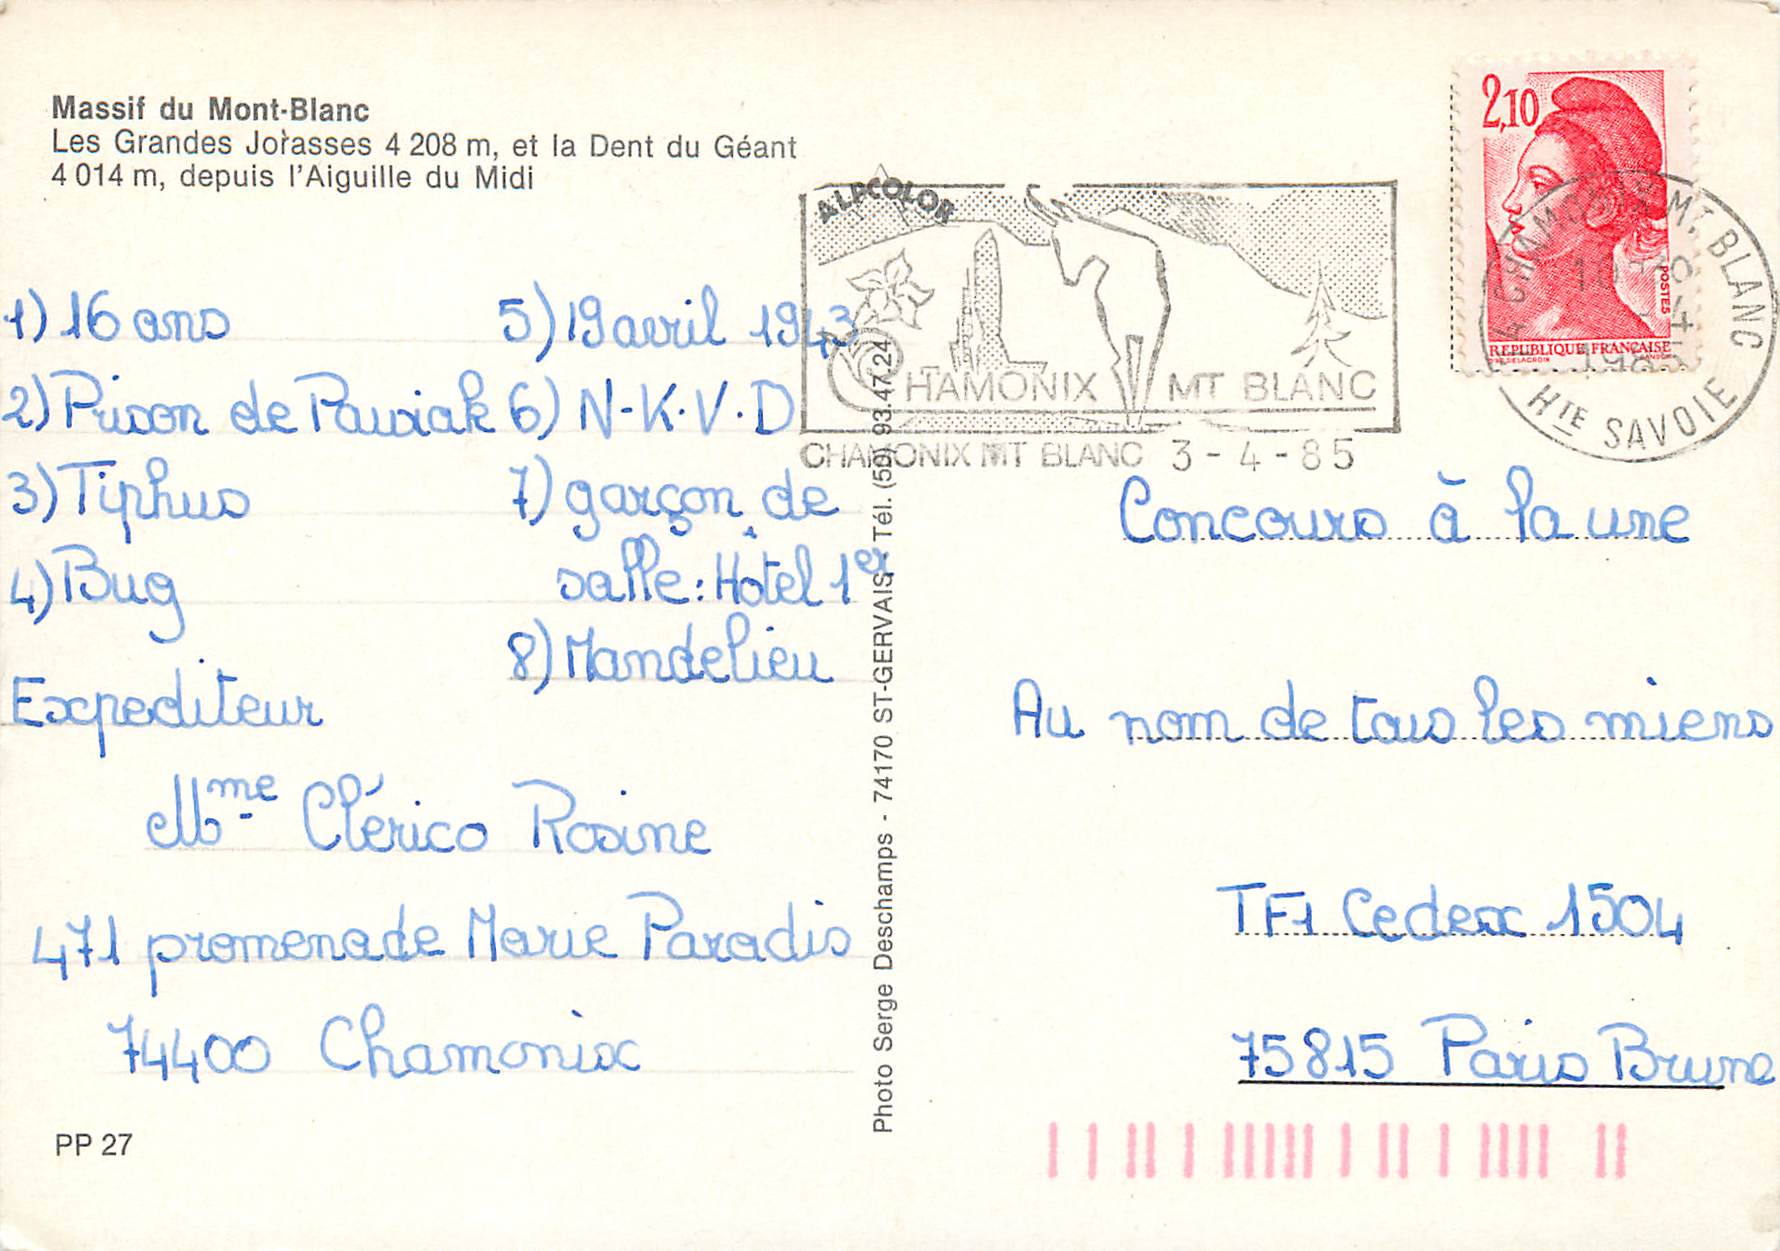 Massif du Mont-Blanc
Les Grandes Jorasses 4 208 m, et la Dent du Géant
4 014 m, depuis l'Aiguille du Midi
ALPCOLOR
CHAMONIX MT BLANC
CHAMONIX MT BLANC 3-4-85
2,10
POSTES
REPUBLIQUE FRANÇAISE
74 CHAMONIX MT. BLANC
Hte SAVOIE
1) 16 ans
2) Prison de Pawiak
3) Tiphus
4) Bug
5) 19 avril 1943
6) N-K.V.D
7) garçon de
salle: Hôtel 1er
8) Mandelieu
Expediteur
Mme Clérico Rosine
471 promenade Marie Paradis
74400 Chamonix
PP 27
Photo Serge Deschamps - 74170 ST-GERVAIS Tél. (50) 93.47.24
Concours à la une
Au nom de tous les miens
TF1 Cedex 1504
75815 Paris Brune